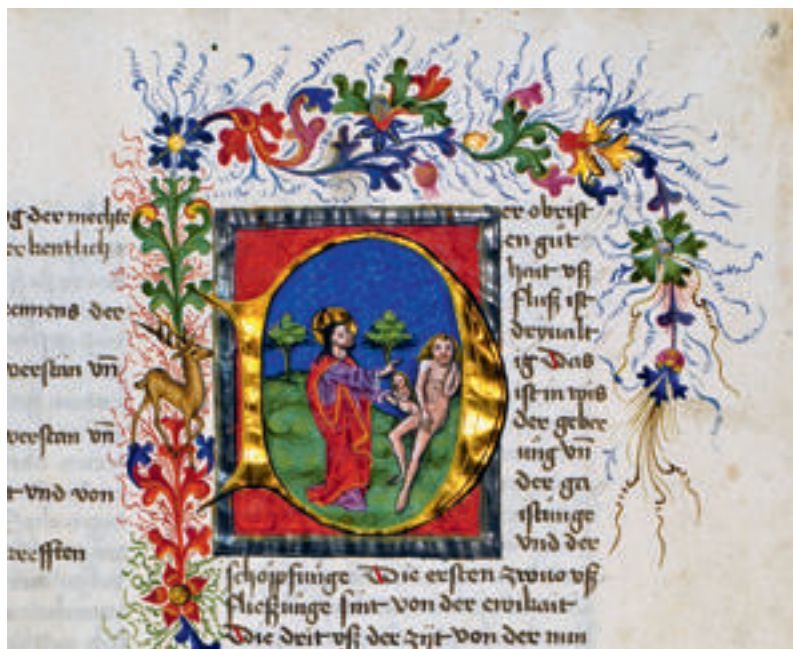 ng der mechte
er kentlich
emens der
verstan vn̄
verstan vn̄
t vnd von
trefften
Der obrist
en güt
hait vß
fluß ist
dryualt
ig Das
ist in wis
der geber
ung vn̄
der ga
istunge
vnd der
schöpfunge Die ersten zwuo vß
fließunge sint von der ewikait
Die drit vß der zÿt von der nun